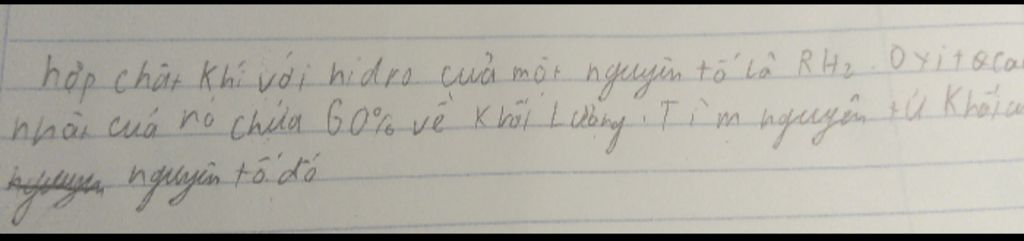 hợp chất khí với hidro của một nguyên tố là RH₂. Oxit ca
nhất của nó chứa 60% về khối lượng. Tìm nguyên tử khối c
nguyên tố đó